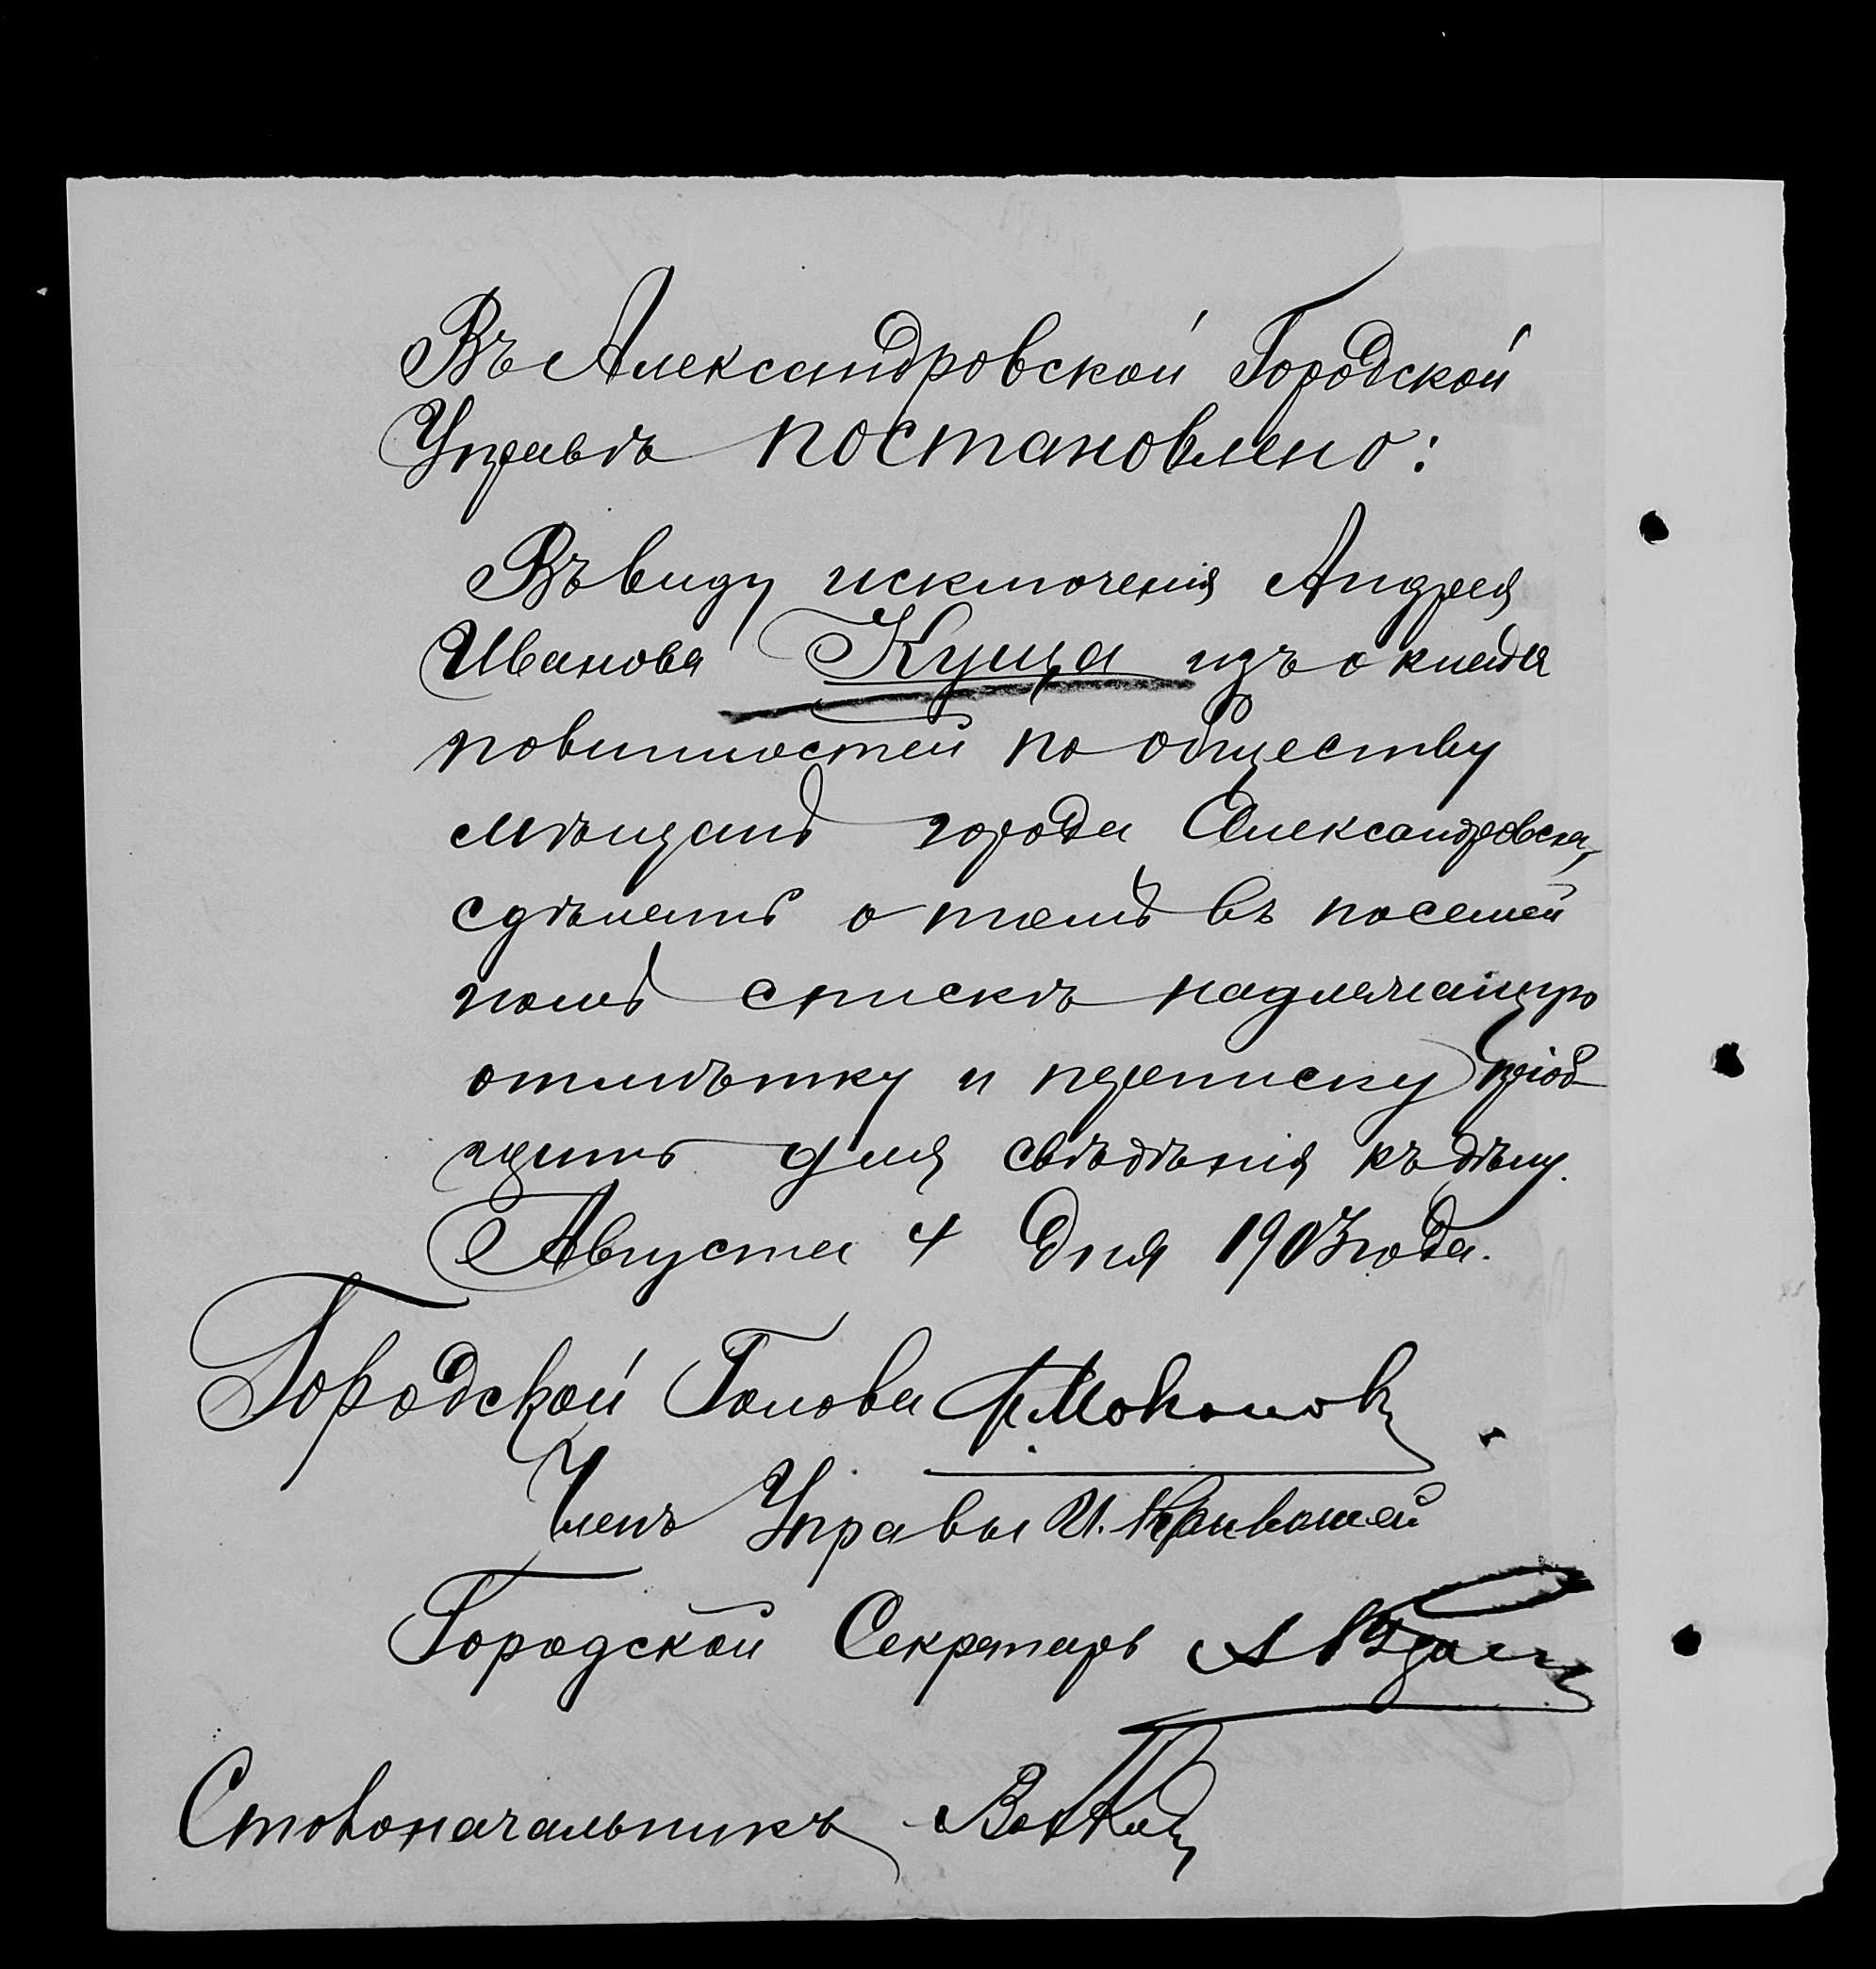 Въ Александровской Городской
Управѣ постановлено:
Въ виду исключенія Андрея
Иванова Куща изъ оклада
повинностей по обществу
мѣщанъ города Александровска,
сдѣлать о томъ въ посемей
номъ спискѣ надлежащую
отмѣтку и переписку пріоб-
щить для свѣдѣнія къ дѣлу.
Августа 4 дня 1903 года.
Городской Голова
Членъ Управы И. Кривошей
Городской Секретарь
Столоначальникъ